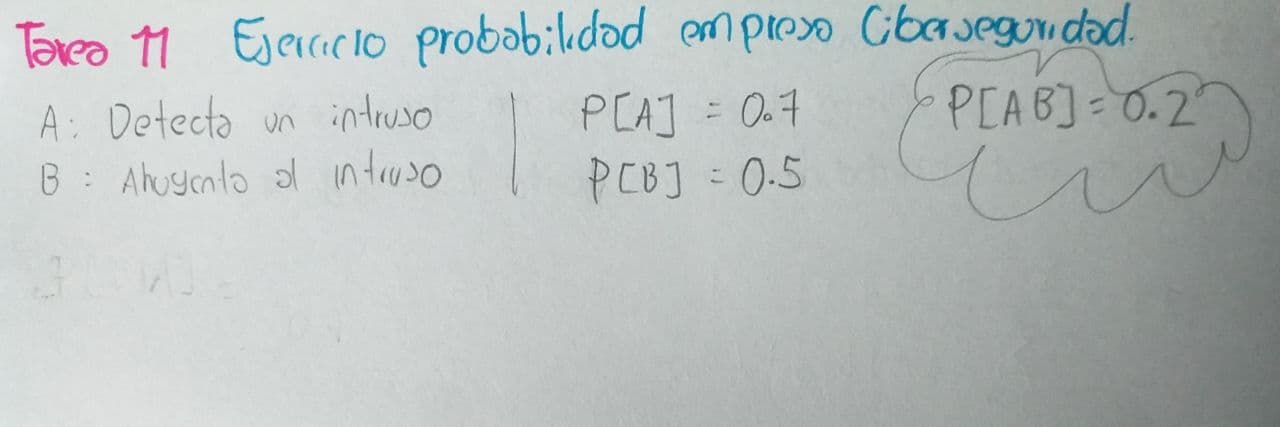 Tarea 11 Ejercicio probabilidad empresa Ciberseguridad.
A: Detecta un intruso P[A] = 0.7 P[AB] = 0.2
B: Ahuyenta al intruso P[B] = 0.5